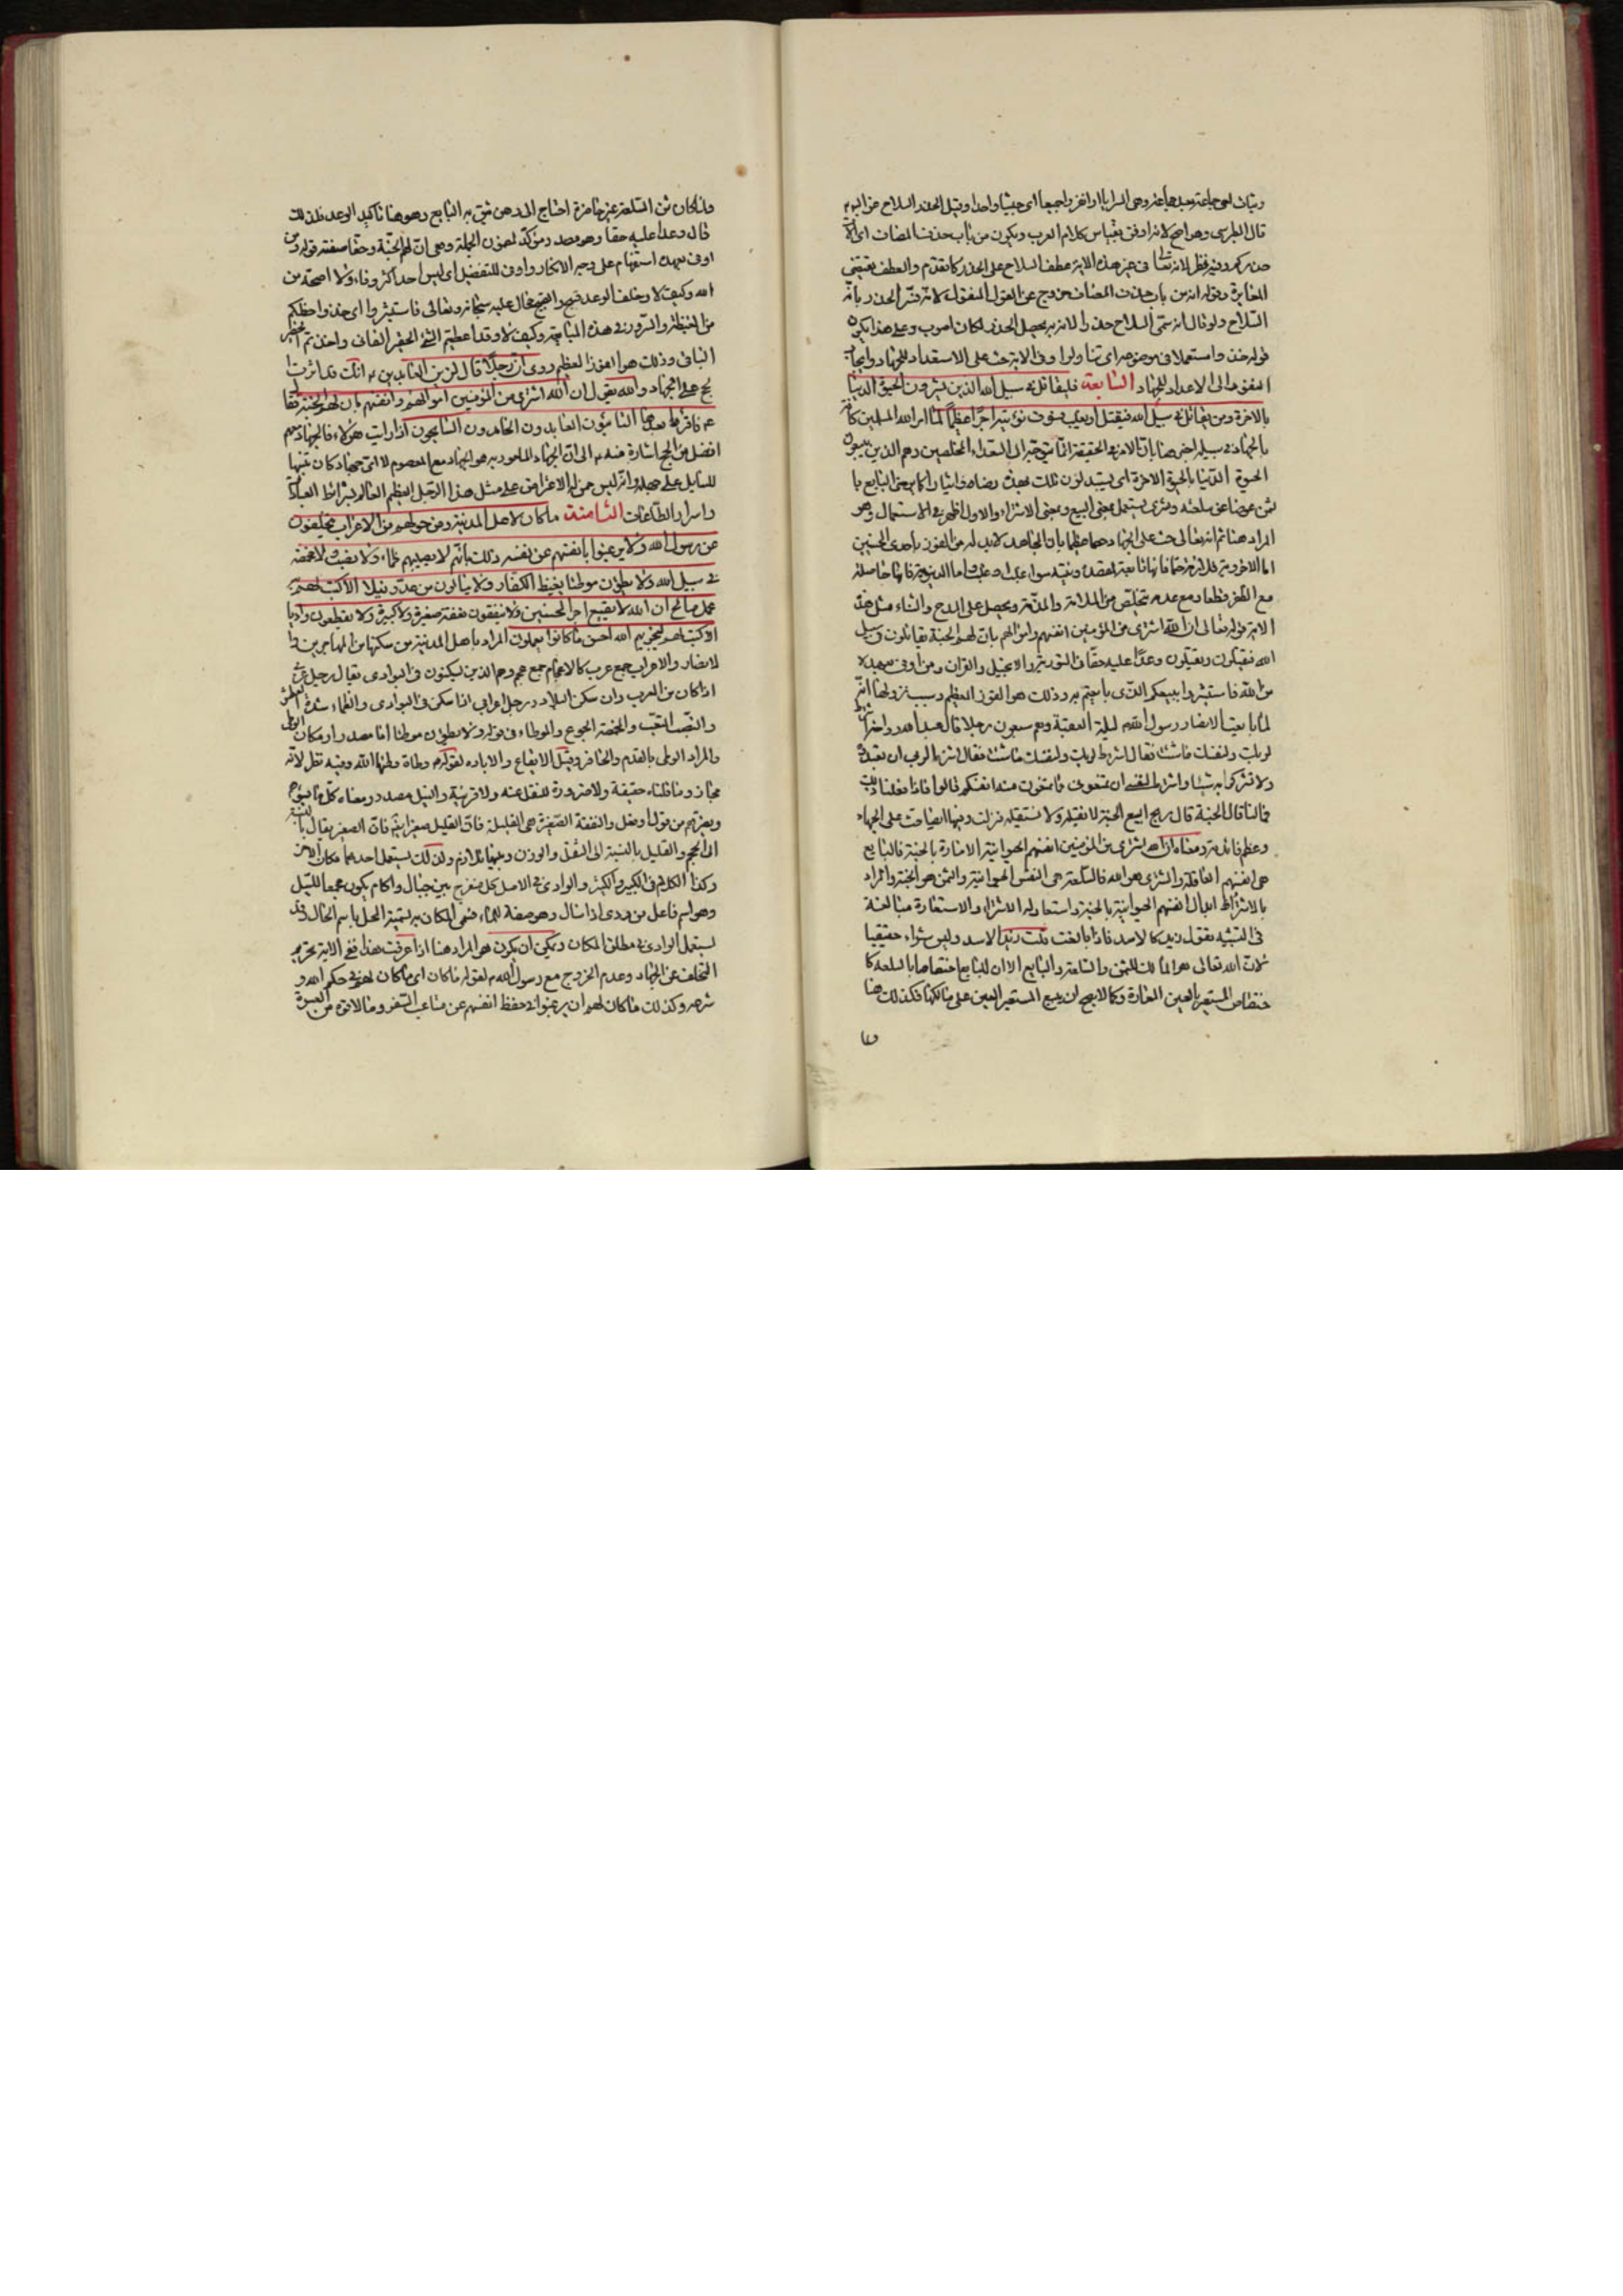 وثبات اى جماعة بعد جماعة وهى السرايا او انفروا جميعا اى جيشا واحدا وقيل الحذر السلاح عن الباقر
قال الطبرسى وهو اصح لانه اوفق بقياس كلام العرب ويكون من باب حذف المضاف اى آلات
حذركم وفيه نظر لانه تعالى فى غير هذه الاية عطف السلاح على الحذر كما تقدم والعطف يقتضى
المغايرة وقوله انه من باب حذف المضاف خروج عن القول المنقول لانه فسر الحذر بانه
السلاح ولو قال انه سمى السلاح حذرا لانه به يحصل الحذر لكان اصوب وعلى هذا يكون
قوله خذوا استعملا فى موضوعه اى تناولوا وفى الاية حث على الاستعداد للجهاد وايجاب
المقدمة الى الاعداد للجهاد السابعة فليقاتل فى سبيل الله الذين يشرون الحيوة الدنيا
بالاخرة ومن يقاتل فى سبيل الله فيقتل او يغلب فسوف نؤتيه اجرا عظيما لما امر الله المسلمين كافة
بالجهاد فى سبيله اخبر هنا بان الامر فى الحقيقة انما يتوجه الى السعداء المخلصين وهم الذين يبيعون
الحيوة الدنيا بالحيوة الاخرة اى يستبدلون تلك بهذه
ثمن عوضا عن سلعته وشرى يستعمل بمعنى البيع وبمعنى الاشتراء والاول اظهر فى الاستعمال وهو
المراد هنا ثم انه تعالى حث على الجهاد بان المجاهد لا بد له من الفوز باحدى الحسنيين
مع الظفر قطعا ومع عدمه تخلص من الملامة والمذمة ويحصل على المدح والثناء مثل هذه
الاية قوله تعالى ان الله اشترى من المؤمنين انفسهم واموالهم بان لهم الجنة يقاتلون فى سبيل
الله فيقتلون ويقتلون وعدا عليه حقا فى التورية والانجيل والقران ومن اوفى بعهده
من الله فاستبشروا ببيعكم الذى بايعتم به وذلك هو الفوز العظيم وسبب نزولها انه
لما بايعت الانصار رسول الله ص ليلة العقبة وهم سبعون رجلا قال عبد الله بن رواحة اشترط
لربك ولنفسك ما شئت فقال اشترط لربى ان تعبدوه
ولا تشركوا به شيئا واشترط لنفسى ان تمنعونى مما تمنعون منه انفسكم قالوا فاذا فعلنا ذلك
فما لنا قال الجنة قال ربح البيع لا نقيل ولا نستقيل فنزلت وفيها ايضا حث على الجهاد
وعظم فائدته ومعناه ان الله اشترى من المؤمنين انفسهم الحيوانية الامارة بالجنة فالبايع
هى انفسهم العاقلة والمشترى هو الله فالسلعة هى النفس الحيوانية والثمن هو الجنة والمراد
بالاشتراء ابدال انفسهم الحيوانية بالجنة واستعار له الاشتراء والاستعارة مبالغة
فى التشبيه تقول زيد كالاسد فاذا بالغت قلت زيد الاسد وليس شراء حقيقيا
لان الله تعالى هو المالك للثمن والسلعة والبايع الا ان للبايع اختصاصا بالسلعة كا
ختصاص المستعير بالعين المعارة وكما لا يصح ان يبيع المستعير العين على مالكها فكذلك هنا
ولما كان ثمن السلعة غير حاضرة احتاج الى رهن يثق به البايع وهو هنا تاكيد الوعد فلذلك
قال وعدا عليه حقا وهو مصدر مؤكد لمضمون الجملة وهى ان لهم الجنة وحقا صفته قوله ومن
اوفى بعهده استفهام على وجه الانكار واوفى للتفضيل اى ليس احد اكثر وفاء ولا اصح عهدا من
الله وكيف لا وخلف الوعد قبيح والقبيح محال عليه سبحانه وتعالى فاستبشروا اى خذوا حظكم
من الغبطة والسرور فى هذه المبايعة وكيف لا وقد اعطيتم الشئ الحقير الفانى واخذتم الخطير
الباقى وذلك هو الفوز العظيم روى ان رجلا قال لزين العابدين ع انك قد اثرت
الحج على الجهاد والله يقول ان الله اشترى من المؤمنين اموالهم وانفسهم بان لهم الجنة فقال
ع فاقرأ ما بعدها التائبون العابدون الحامدون السايحون اذا رايت هؤلاء فالجهاد معهم
افضل من الحج اشارة منه ع الى ان الجهاد المامور به هو الجهاد مع المعصوم لا اى جهاد كان تنبيها
للسايل على جهله وانه ليس ممن له الاعتراض على مثل هذا الرجل العظيم العالم بشرائط العبادات
واسرار الطاعات الثامنة ما كان لاهل المدينة ومن حولهم من الاعراب ان يتخلفوا
عن رسول الله ولا يرغبوا بانفسهم عن نفسه ذلك بانهم لا يصيبهم ظماء ولا نصب ولا مخمصة
فى سبيل الله ولا يطؤن موطئا يغيظ الكفار ولا ينالون من عدو نيلا الا كتب لهم به
عمل صالح ان الله لا يضيع اجر المحسنين ولا ينفقون نفقة صغيرة ولا كبيرة ولا يقطعون واديا
الا كتب لهم ليجزيهم الله احسن ما كانوا يعملون المراد باهل المدينة من سكنها من المهاجرين وا
لانصار والاعراب جمع عرب كالاعجام جمع عجم وهم الذين يسكنون فى البوادى يقال رجل عربى
اذا كان من العرب وان سكن البلاد ورجل اعرابى اذا سكن فى البوادى والظماء شدة العطش
والنصب التعب والمخمصة الجوع والموطاء فى قوله ولا يطؤن موطئا اما مصدر او مكان الوطى
والمراد الوطى بالقدم والحافر وقيل الايقاع والابادة لقوله ص وطاة وطئها الله وفيه نظر لانه
مجاز وما قلناه حقيقة ولا ضرورة للنقل عنه ولا قرينة والنيل مصدر ومعناه كل ما يسوءهم
ويضرهم من قول او فعل والنفقة الصغيرة هى القليلة فان القليل صغير فان الصغير يقال بالنسبة
الى الحجم والقليل بالنسبة الى الثقل والوزن وبينهما تلازم ولذلك يستعمل احدهما مكان الاخر
وكذا الكلام فى الكبير والكثير والوادى فى الاصل كل منفرج بين جبال واكام يكون مجمعا للسيل
وهو اسم فاعل من ودى اذا سال وهو صفة للماء فسمى المكان به تسمية المحل باسم الحال وقد
يستعمل الوادى فى مطلق المكان ويمكن ان يكون هو المراد هنا اذا عرفت هذا ففى الاية تحريم
التخلف عن الجهاد وعدم الخروج مع رسول الله ص لقوله ما كان اى ما كان لهم فى حكم الله و
شرعه وكذلك ما كان لهم ان يرغبوا فى حفظ انفسهم عن متاعب السفر وما لاقوه من العسرة